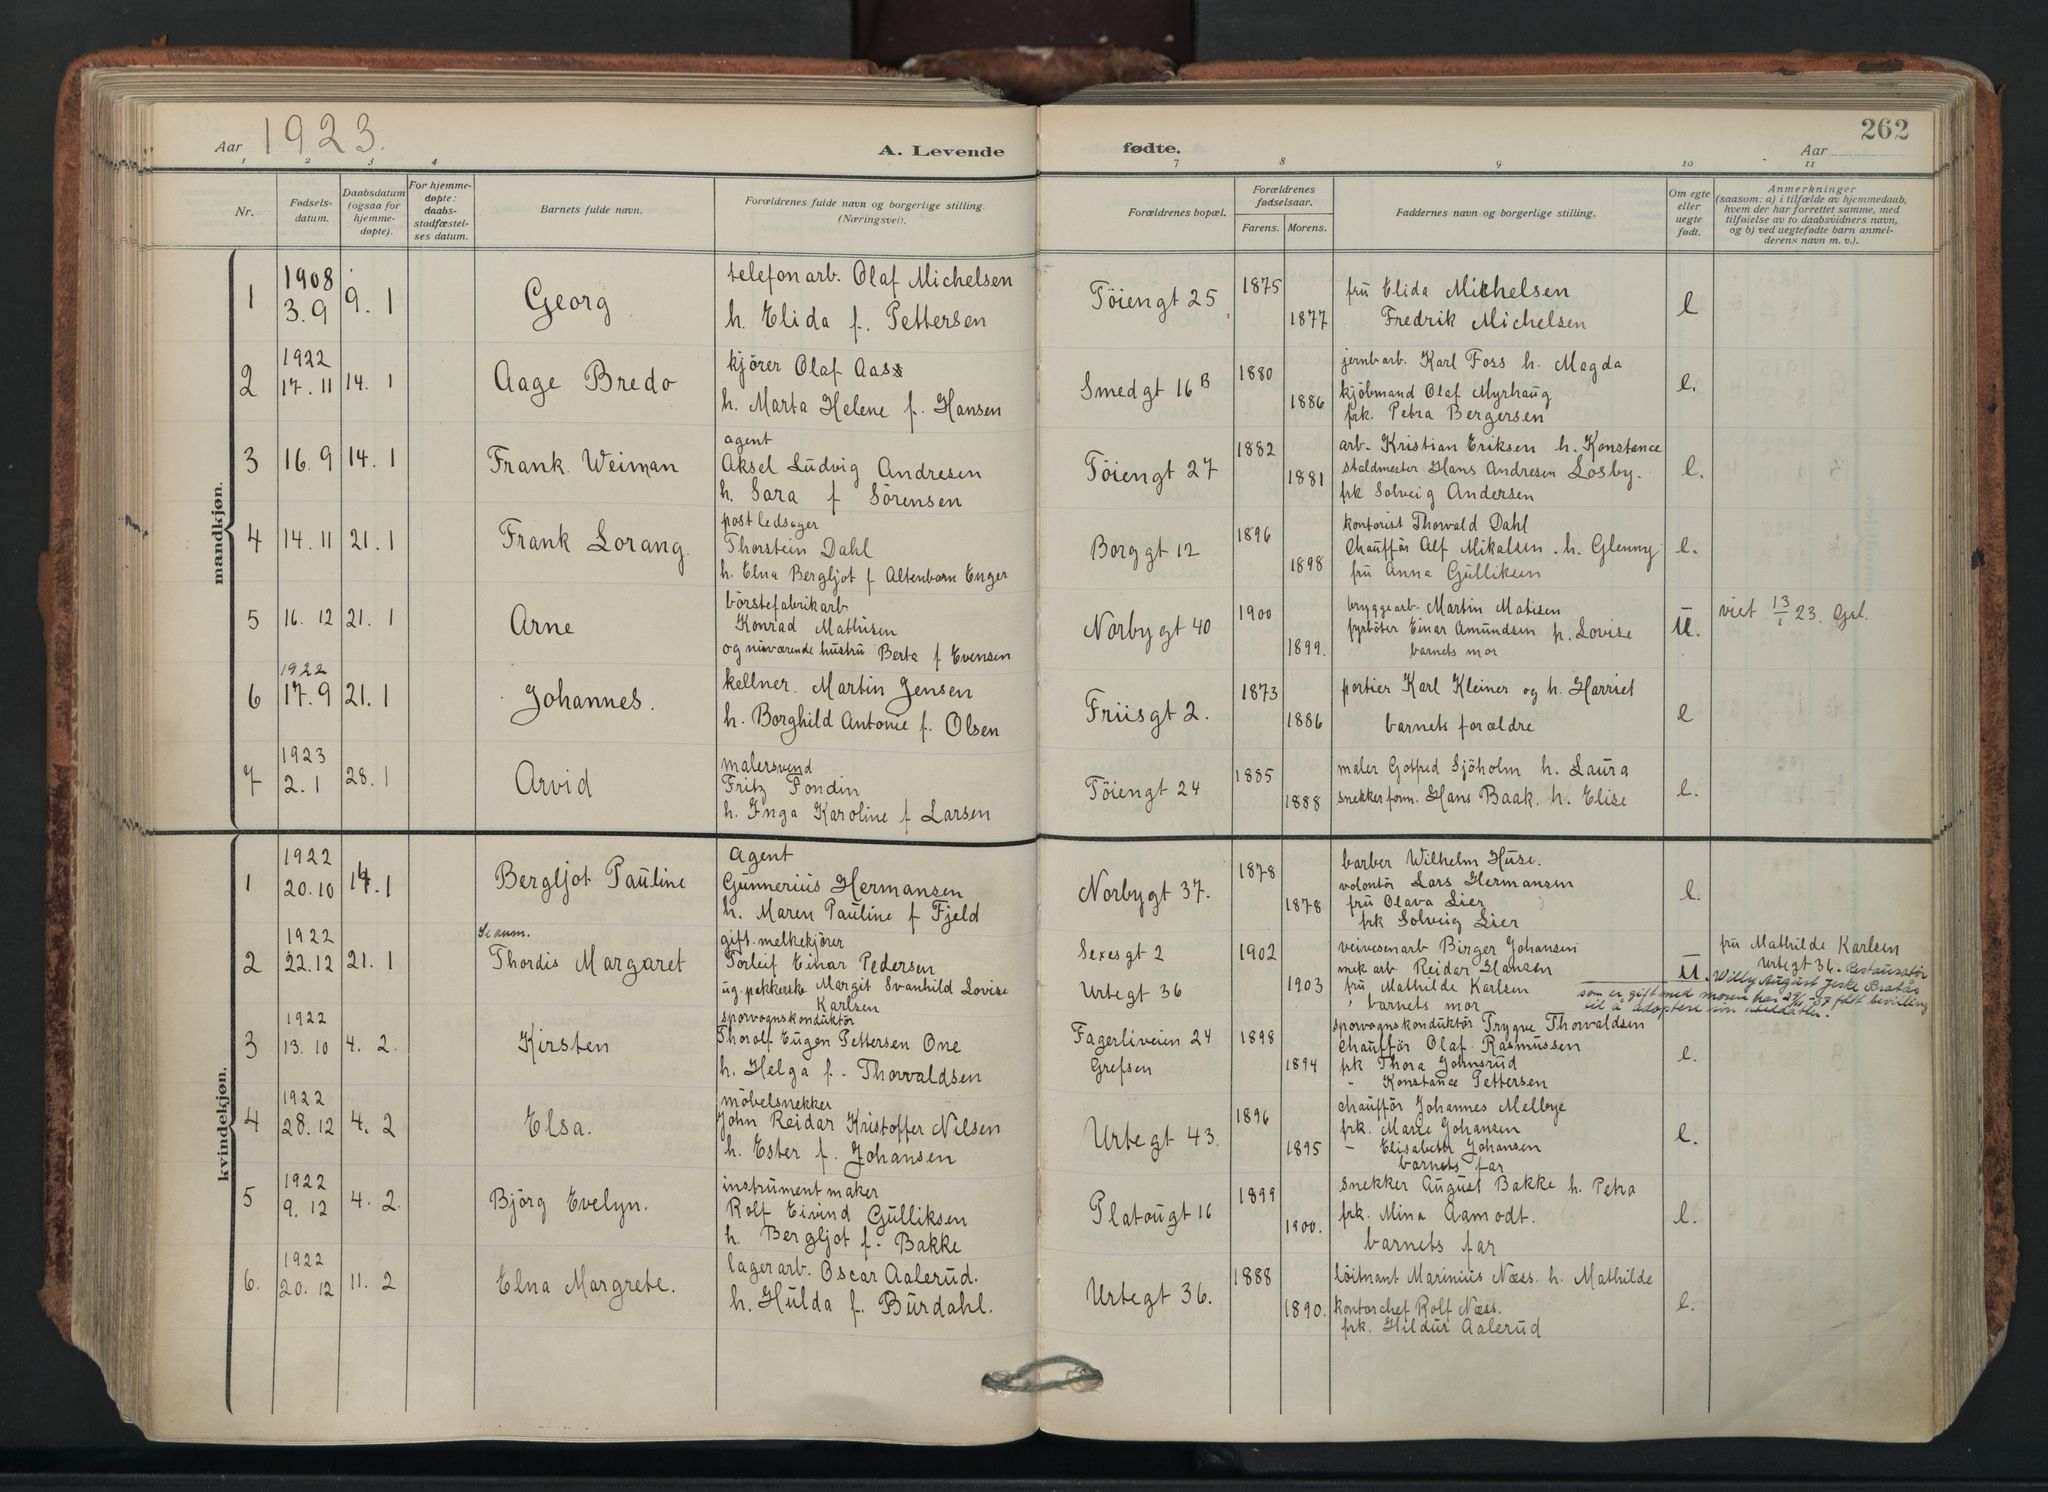 262
Aar 1923.
A. Levende fødte.
Aar
1 2 3 4 7 8 9 10 11
Nr.
Fødsels-
datum.
Daabsdatum
(ogsaa for
hjemme-
døpte).
For hjemme-
døpte:
daabs-
stadfæstel-
ses datum.
Barnets fulde navn.
Forældrenes fulde navn og borgerlige stilling.
(Næringsvei).
Forældrenes bopæl.
Forældrenes
fødselsaar.
Farens. Morens.
Faddernes navn og borgerlige stilling.
Om egte
eller
uegte
født.
Anmerkninger
(saasom: a) i tilfælde av hjemmedaab,
hvem der har forrettet samme, med
tilføielse av to daabsvidners navn,
og b) ved uegtefødte barn anmel-
derens navn m. v.).
mandkjøn.
1
1908
3.9
9. 1
Georg
telefonarb. Olaf Michelsen
h. Elida f. Pettersen
Töiengt 25
1875
1877
fru Elida Michelsen
Fredrik Michelsen
e
2
1922
17. 11
14. 1
Aage Bredo
kjörer Olaf Aas
h. Marta Helene f. Hansen
Smedgt 16 B
1880
1886
jernbarb. Karl Foss h. Magda
kjöbmand Olaf Myrhaug
frk. Petra Bergersen
e.
3
16. 9
14. 1
Frank Weiman
agent
Aksel Ludvig Andresen
h. Sara f Sörensen
Töiengt 27
1882
1881
arb. Kristian Eriksen h. Konstance
staldmester Hans Andresen Losby.
frk Solveig Andersen
e.
4
14. 11
21. 1
Frank Lorang.
postledsager
Thorstein Dahl
h. Elna Bergljot f Altenborn Enger
Borggt 12
1896
1898
kontorist Thorvald Dahl
Chaufför Alf Mikalsen. h. Glenny
fru Anna Gulliksen
e.
5
16. 12
21. 1
Arne
börstefabrikarb
Konrad Mathisen
og nuværende hustru Berta f Evensen
Norbygt 40
1900
1899.
bryggearb. Martin Matisen
fyrböter Einar Amundsen h. Lovise
barnets mor
U.
viet 13/1 23. Gsl.
6
1922
17. 9
21. 1
Johannes.
kellner. Martin Jensen
h. Borghild Antonie f. Olsen
Friisgt 2.
1873
1886
portier Karl Kleiner og h. Harriet
barnets forældre
e
7
1923
2. 1
28. 1
Arvid
malersvend
Fritz Pondin
h. Inga Karoline f Larsen
Töiengt 24
1885
1888
maler Gotfred Sjöholm h. Laura
snekkerform. Hans Baak. h. Elise
e.
kvindekjøn.
1
1922
20. 10
14. 1
Bergljot Pauline
Agent
Gunnerius Hermansen
h. Maren Pauline f Fjeld
Norbygt 37.
1878
1878
barber Wilhelm Huse.
volontör Lars Hermansen
fru Olava Lier
frk Solveig Lier
e.
2
1922
22. 12
21. 1
Se anm.
Thordis Margaret
gift melkekjörer
Torleif Einar Pedersen
ug. pekkerske Margit Svanhild Lovise
Karlsen
Sexesgt 2
Urtegt 36
1902
1903
veivesenarb Birger Johansen
mek arb Reidar Hansen
fru Mathilde Karlsen
barnets mor
U.
fru Mathilde Karlsen
Urtegt 36. Restauratör
Willy August Jeske Bratås
som er gift med moren har fått bevilling
til å adoptere
3
1922
13. 10
4. 2.
Kirsten
sporvognskonduktör
Thorolf Eugen Pettersen One
h. Helga f. Thorvaldsen
Fagerliveien 24
Grefsen
1898
1894
sporvognskonduktör Trygve Thorvaldsen
Chaufför Olaf Rasmussen
frk Thora Johnsrud
- Konstance Pettersen
e.
4
1922
28. 12
4. 2
Elsa.
möbelsnekker
John Reidar Kristoffer Nilsen
h. Ester f. Johansen
Urtegt 43.
1896
1895
chaufför Johannes Melbye
frk. Marie Johansen
- Elisabeth Johansen
barnets far
e.
5
1922
9. 12
4. 2.
Björg Evelyn.
instrumentmaker
Rolf Eivind Gulliksen
h. Bergljot f. Bakke
Platougt 16
1899
1900.
snekker August Bakke h. Petra
frk. Mina Aamodt.
barnets far
e.
6.
1922
20. 12
11. 2
Elna Margrete.
lagerarb. Oscar Aalerud.
h. Hulda f. Burdahl.
Urtegt 36.
1888
1890.
löitnant Marinius Næss. h. Mathilde
kontorchef Rolf Næss.
frk. Hildur Aalerud
e.